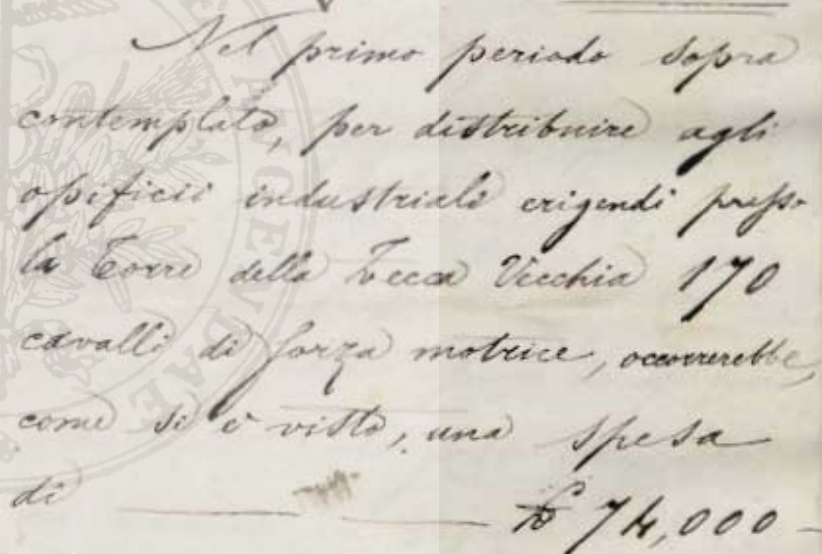 Nel primo periodo sopra
contemplato, per distribuire agli
opificii industriali erigendi presso
la Torre della Zecca Vecchia 170
cavalli di forza motrice, occorrerebbe,
come si è visto, una spesa
di ₤ 74,000 -